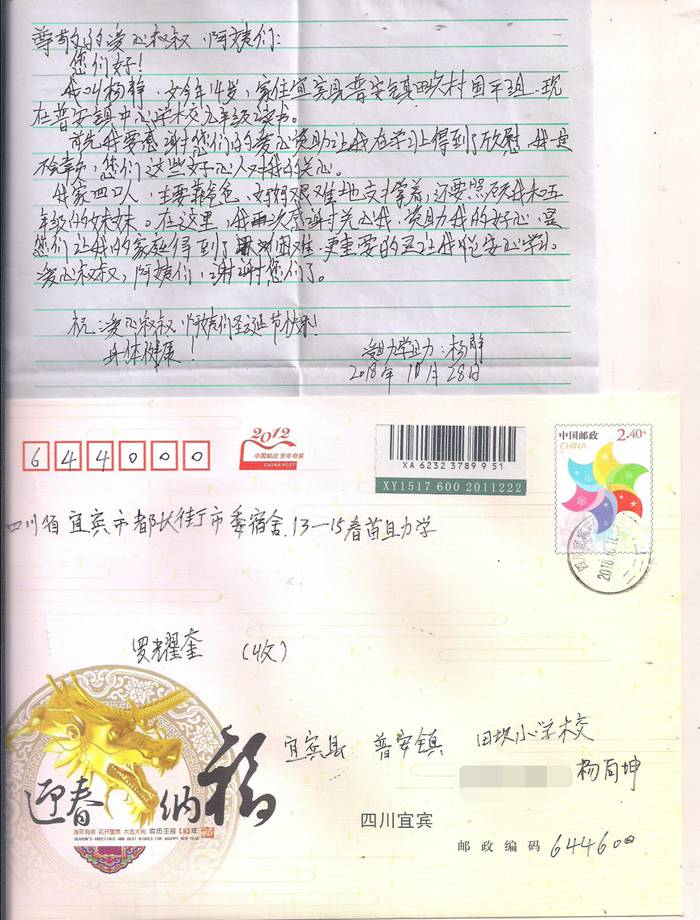 尊敬的爱心叔叔、阿姨们:
您们好!
我叫杨静,女今年14岁,家住宜宾县普安镇田坎村团平组,现
在普安镇中心学校九年级读书。
首先我要感谢您们的爱心资助让我在学习上得到了欣慰,我一定
不辜负,您们这些好心人对我的关心。
我家四口人,主要靠爸爸、妈妈艰难地支撑着,还要照顾我和五
年级的妹妹。在这里,我再次感谢关心我,资助我的好心,是
您们让我的家庭得到了困难,更重要的是让我能安心学习。
爱心叔叔,阿姨们,谢谢您们了。
祝:爱心叔叔、阿姨们圣诞节快乐!
身体健康!
受助学生:杨静
2018年10月28日
644000
2012
中国邮政 贺年有奖
CHINA POST
XA 6232 3789 9 51
XY1517 600 2011222
中国邮政
CHINA
2.40元
四川省宜宾市都长街丁市委宿舍.13-15春苗助学
罗耀奎 (收)
宜宾县 普安镇 田坎小学校
杨局坤
迎春纳福
连年有余 花开富贵 大吉大利 农历壬辰【龙】年
SEASON'S GREETINGS AND BEST WISHES FOR HAPPY NEW YEAR
四川宜宾
邮政编码 644600